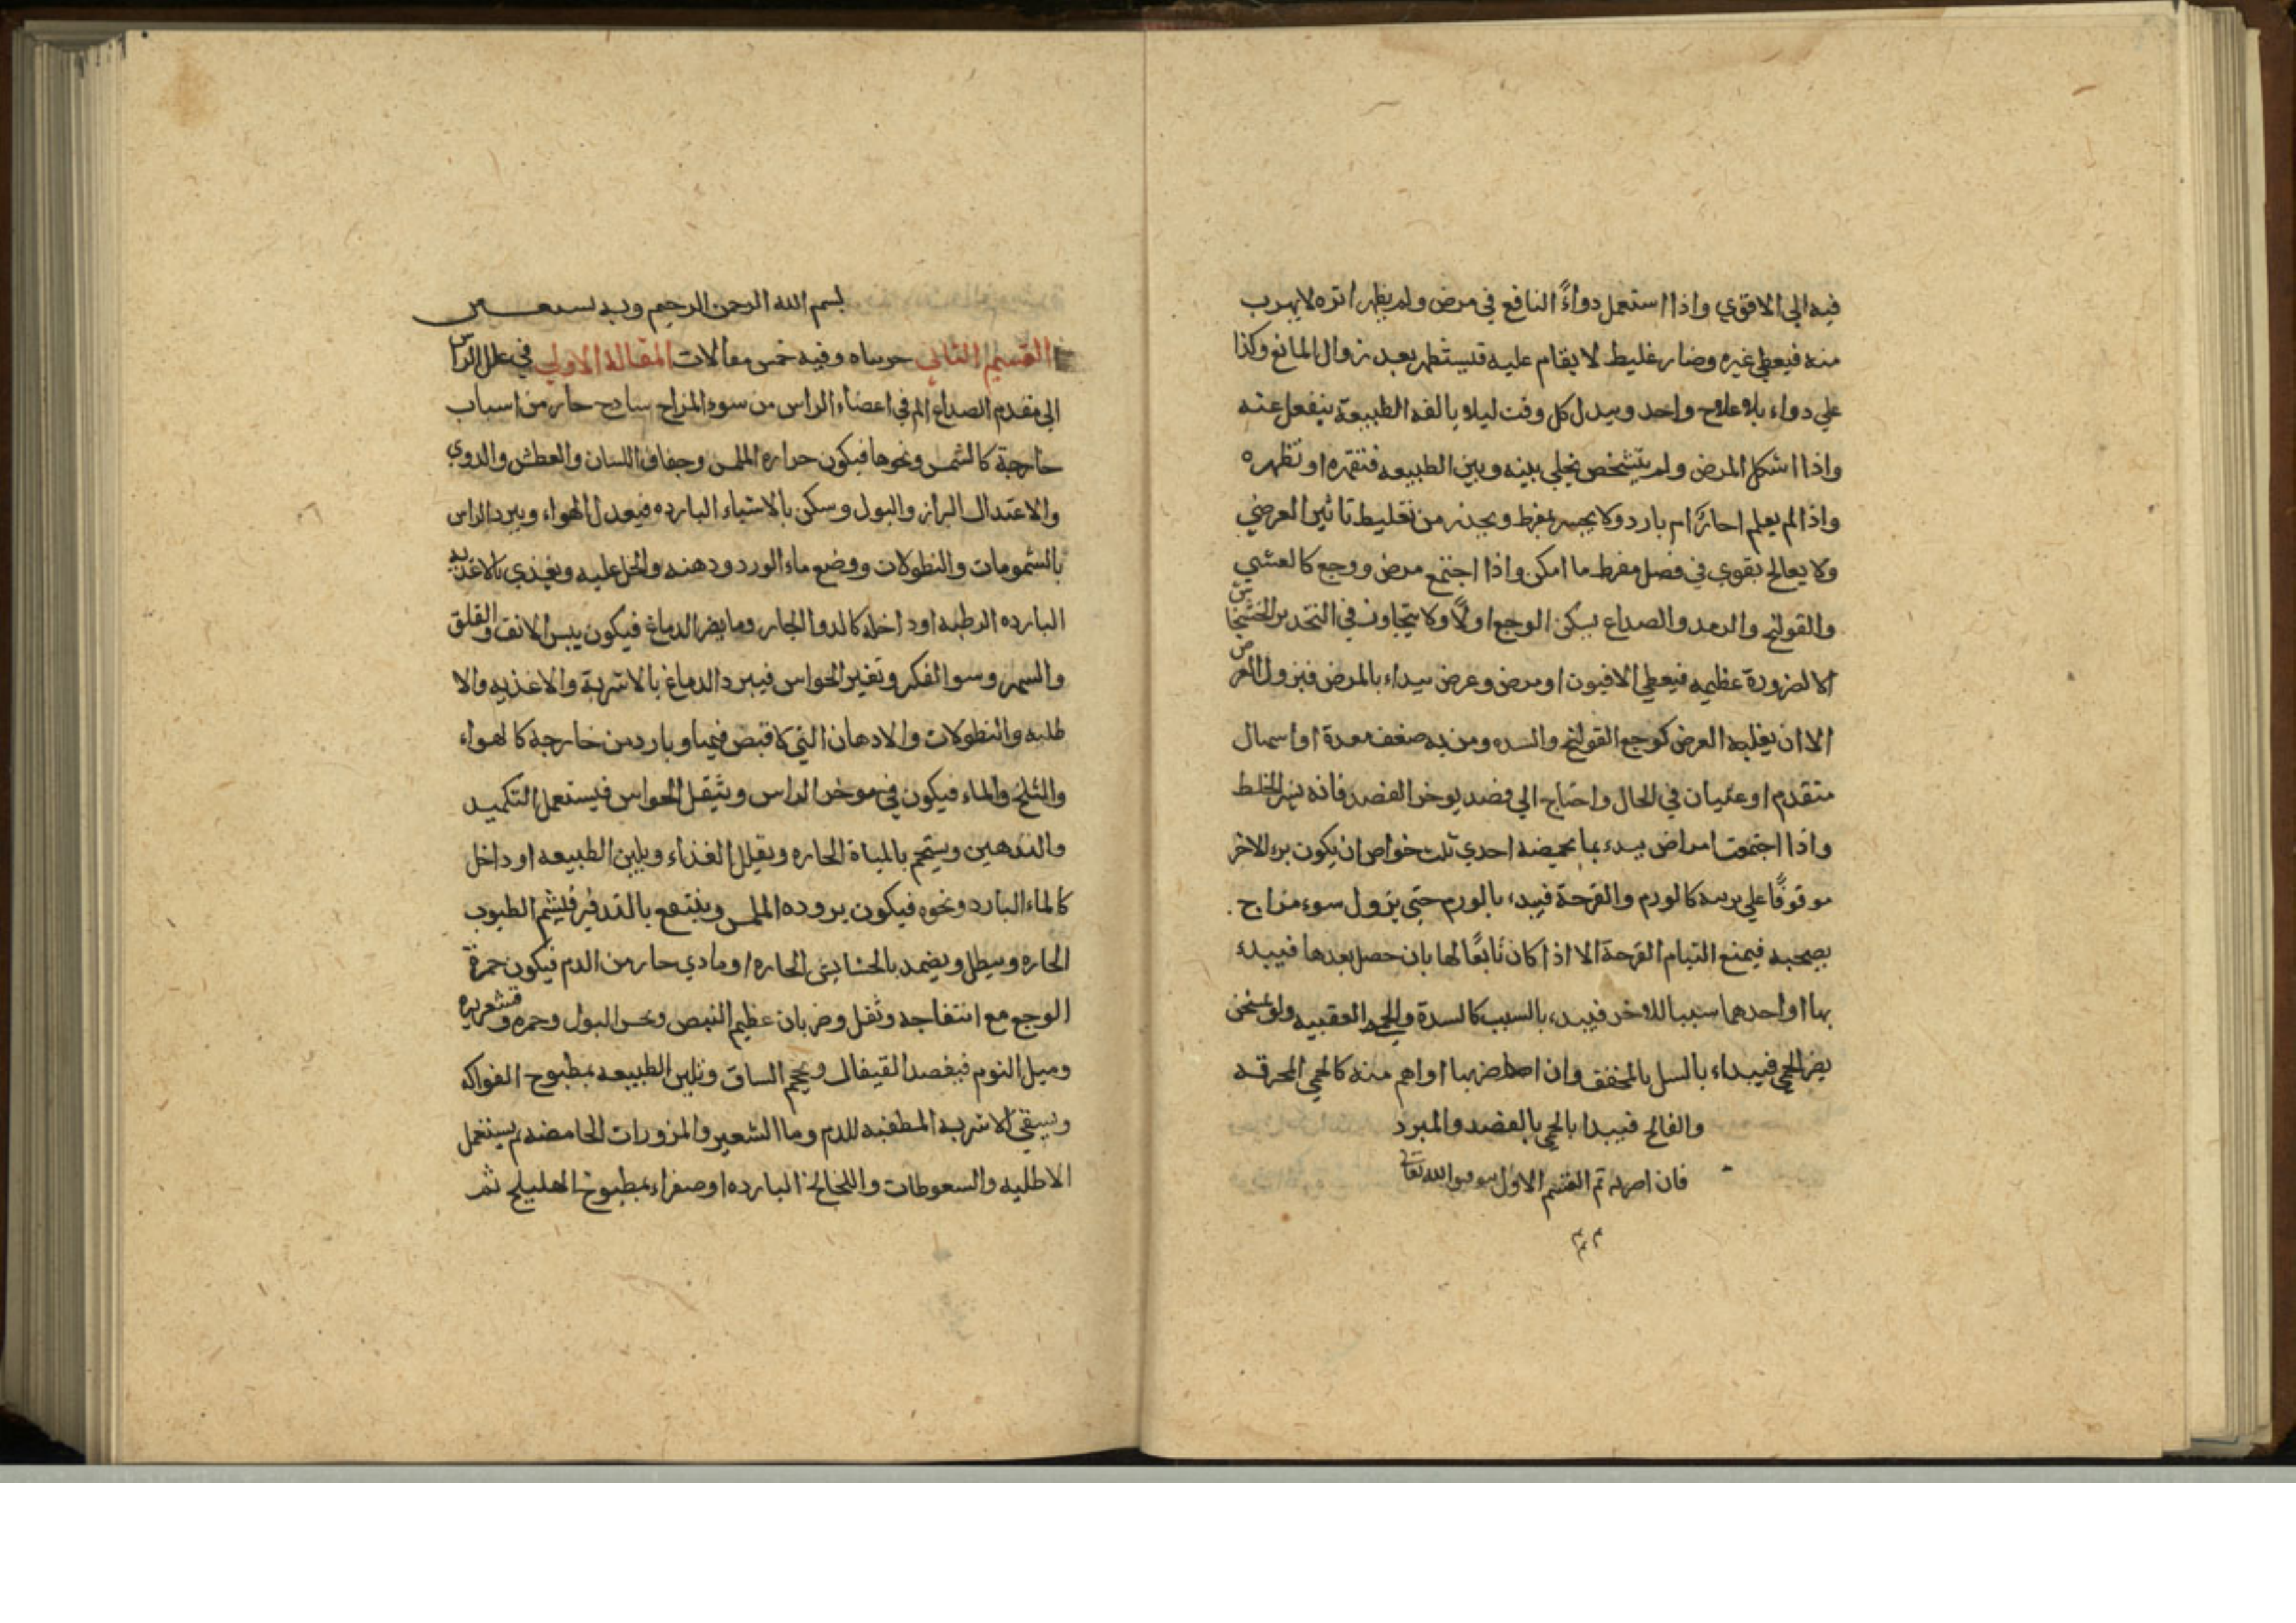 فيه الي الاقوي واذا استعمل دواءً النافع في مرض ولم يظهر اثره لا يهرب
منه فيعطي غيره وضار غليط لا يقام عليه فيستظهر بعد زوال المانع وكذا
علي دواء بلا علاج واحد ويبدل كل وقت ليلا يالفه الطبيعة ينفعل عنه
واذا اشكل المرض ولم يتشخص يخلي بينه وبين الطبيعه فتقهره او تظهره
واذا لم يعلم احارٌ ام بارد ولا يجسر بمفرط ويحذر من تغليط تاثير العرضي
ولا يعالج بقوي في فصل مفرط ما امكن واذا اجتمع مرض ووجع كالعشي
والقولنج والرمد والصداع يسكن الوجع اولًا ولا يتجاوز في التخدير الخشخاش
الا لضرورة عظيمه فيعطي الافيون او مرض وعرض يبداء بالمرض فيزول العرض
الا ان يغلبه العرض كوجع القولنج والسده ومن به ضعف معدة او اسهال
متقدم او غثيان في الحال واحتاج الي فصد يوخر الفصد فانه الخلط
واذا اجتمعت امراض يبدء بما احدي ثلث خواص ان يكون برء الاخر
موقوفًا علي برءه كالورم والقرحة فيبدء بالورم حتي يزول سوء مزاج
يصحبه فيمنع التيام القرحة الا اذا كان تابعًا لها بان حصل بعدها فيبدء
بها او احدهما سببا للاخر فيبدء بالسبب كالسدة والحمي العفنيه ولو بمسخن
يضر الحمي فيبداء بالسل بالمجفف وان اضر بها او اهم منه كالحمي المحرقه
والفالج فيبدا بالحمي بالفصد والمبرد
فان تم القسم الاول الله تعالي
م م م
بسم الله الرحمن الرحيم وبه نستعين
القسم الثاني وفيه خمس مقالات المقالة الاولي في علل الراس
الي مقدم الصداع الم في اعضاء الراس من سوء المزاج ساذج حار من اسباب
خارجة كالشمس ونحوها فيكون حراره الملمس وجفاف اللسان والعطش والدوي
والاعتدال البراز والبول وسكن بالاشياء البارده فيعدل الهواء ويبرد الراس
بالشمومات والنطولات ووضع ماء الورد ودهنه والخل عليه ويغذي بالاغذيه
البارده الرطبه او داخله كالدوا الحار وما يضر الدماغ فيكون يبس الانف والقلق
والسهر وسوا لفكر وتغير الحواس فيبرد الدماغ بالاشربة والاغذيه والا
طليه والنطولات والادهان التي لا قبض فيها وبارد من خارجة كالهواء
والثلج والماء فيكون في موخر الراس ويثقل الحواس فيستعمل التكميد
والتدهين ويستحم بالمياة الحاره ويقلل الغذاء ويلين الطبيعه او داخل
كالماء البارد ونحوه فيكون بروده الملمس وينتفع بالتدفير فليشم الطيوب
الحاره وينطل ويضمد بالحشايش الحاره او مادي حار من الدم فيكون حمرة
الوجه مع انتفاخه وثقل وضربان عظيم النبض وثخن البول وحمره وقشعريره
وميل النوم فيفصد القيفال ويحجم الساق وتلين الطبيعه بمطبوخ الفواكه
ويسقي الاشربه المطفيه للدم وماا لشعير والمزورات الحامضه ثم يستعمل
الاطليه والسعوطات واللخالخ البارده او صفراء بمطبوخ الهليلج ثم